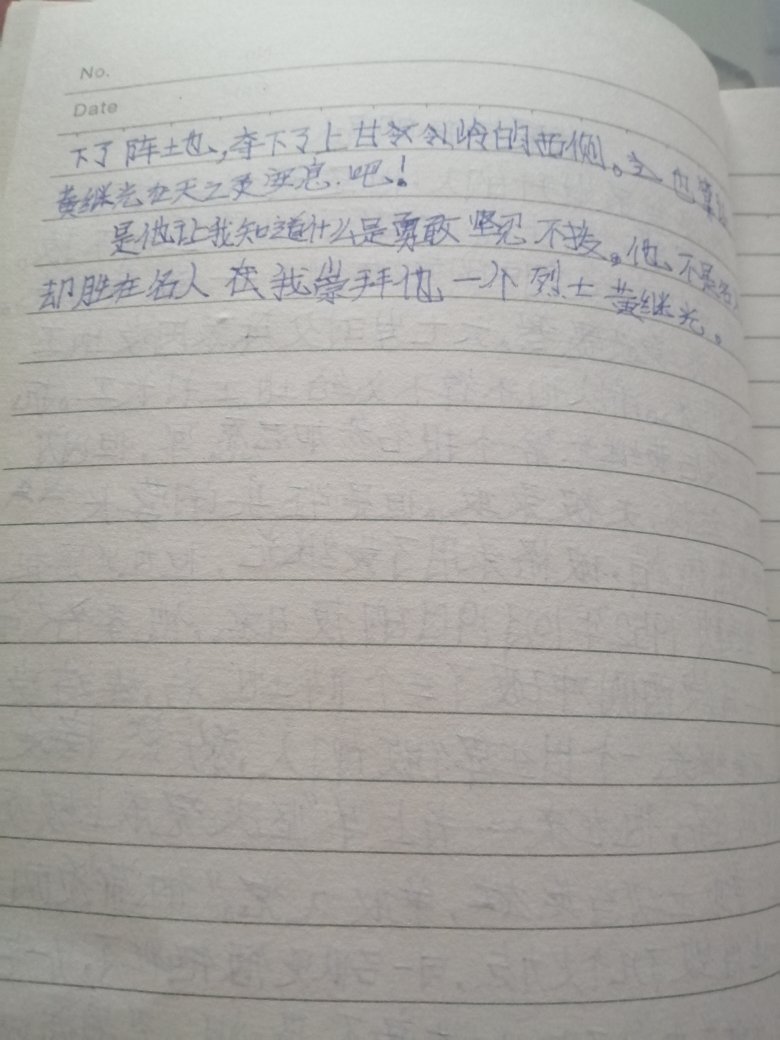 No.
Date
下了阵地,夺下了上甘岭岭的西侧。这也算
黄继光在天之灵 吧!
是他让我知道什么是勇敢 坚忍 不拔。他 不是名人
却胜在名人 在我崇拜他 一个烈士黄继光。